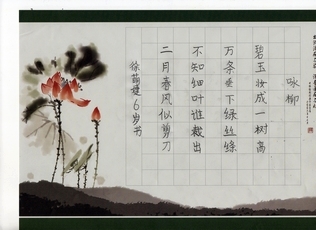 咏柳
碧玉妆成一树高
万条垂下绿丝绦
不知细叶谁裁出
二月春风似剪刀
6岁书